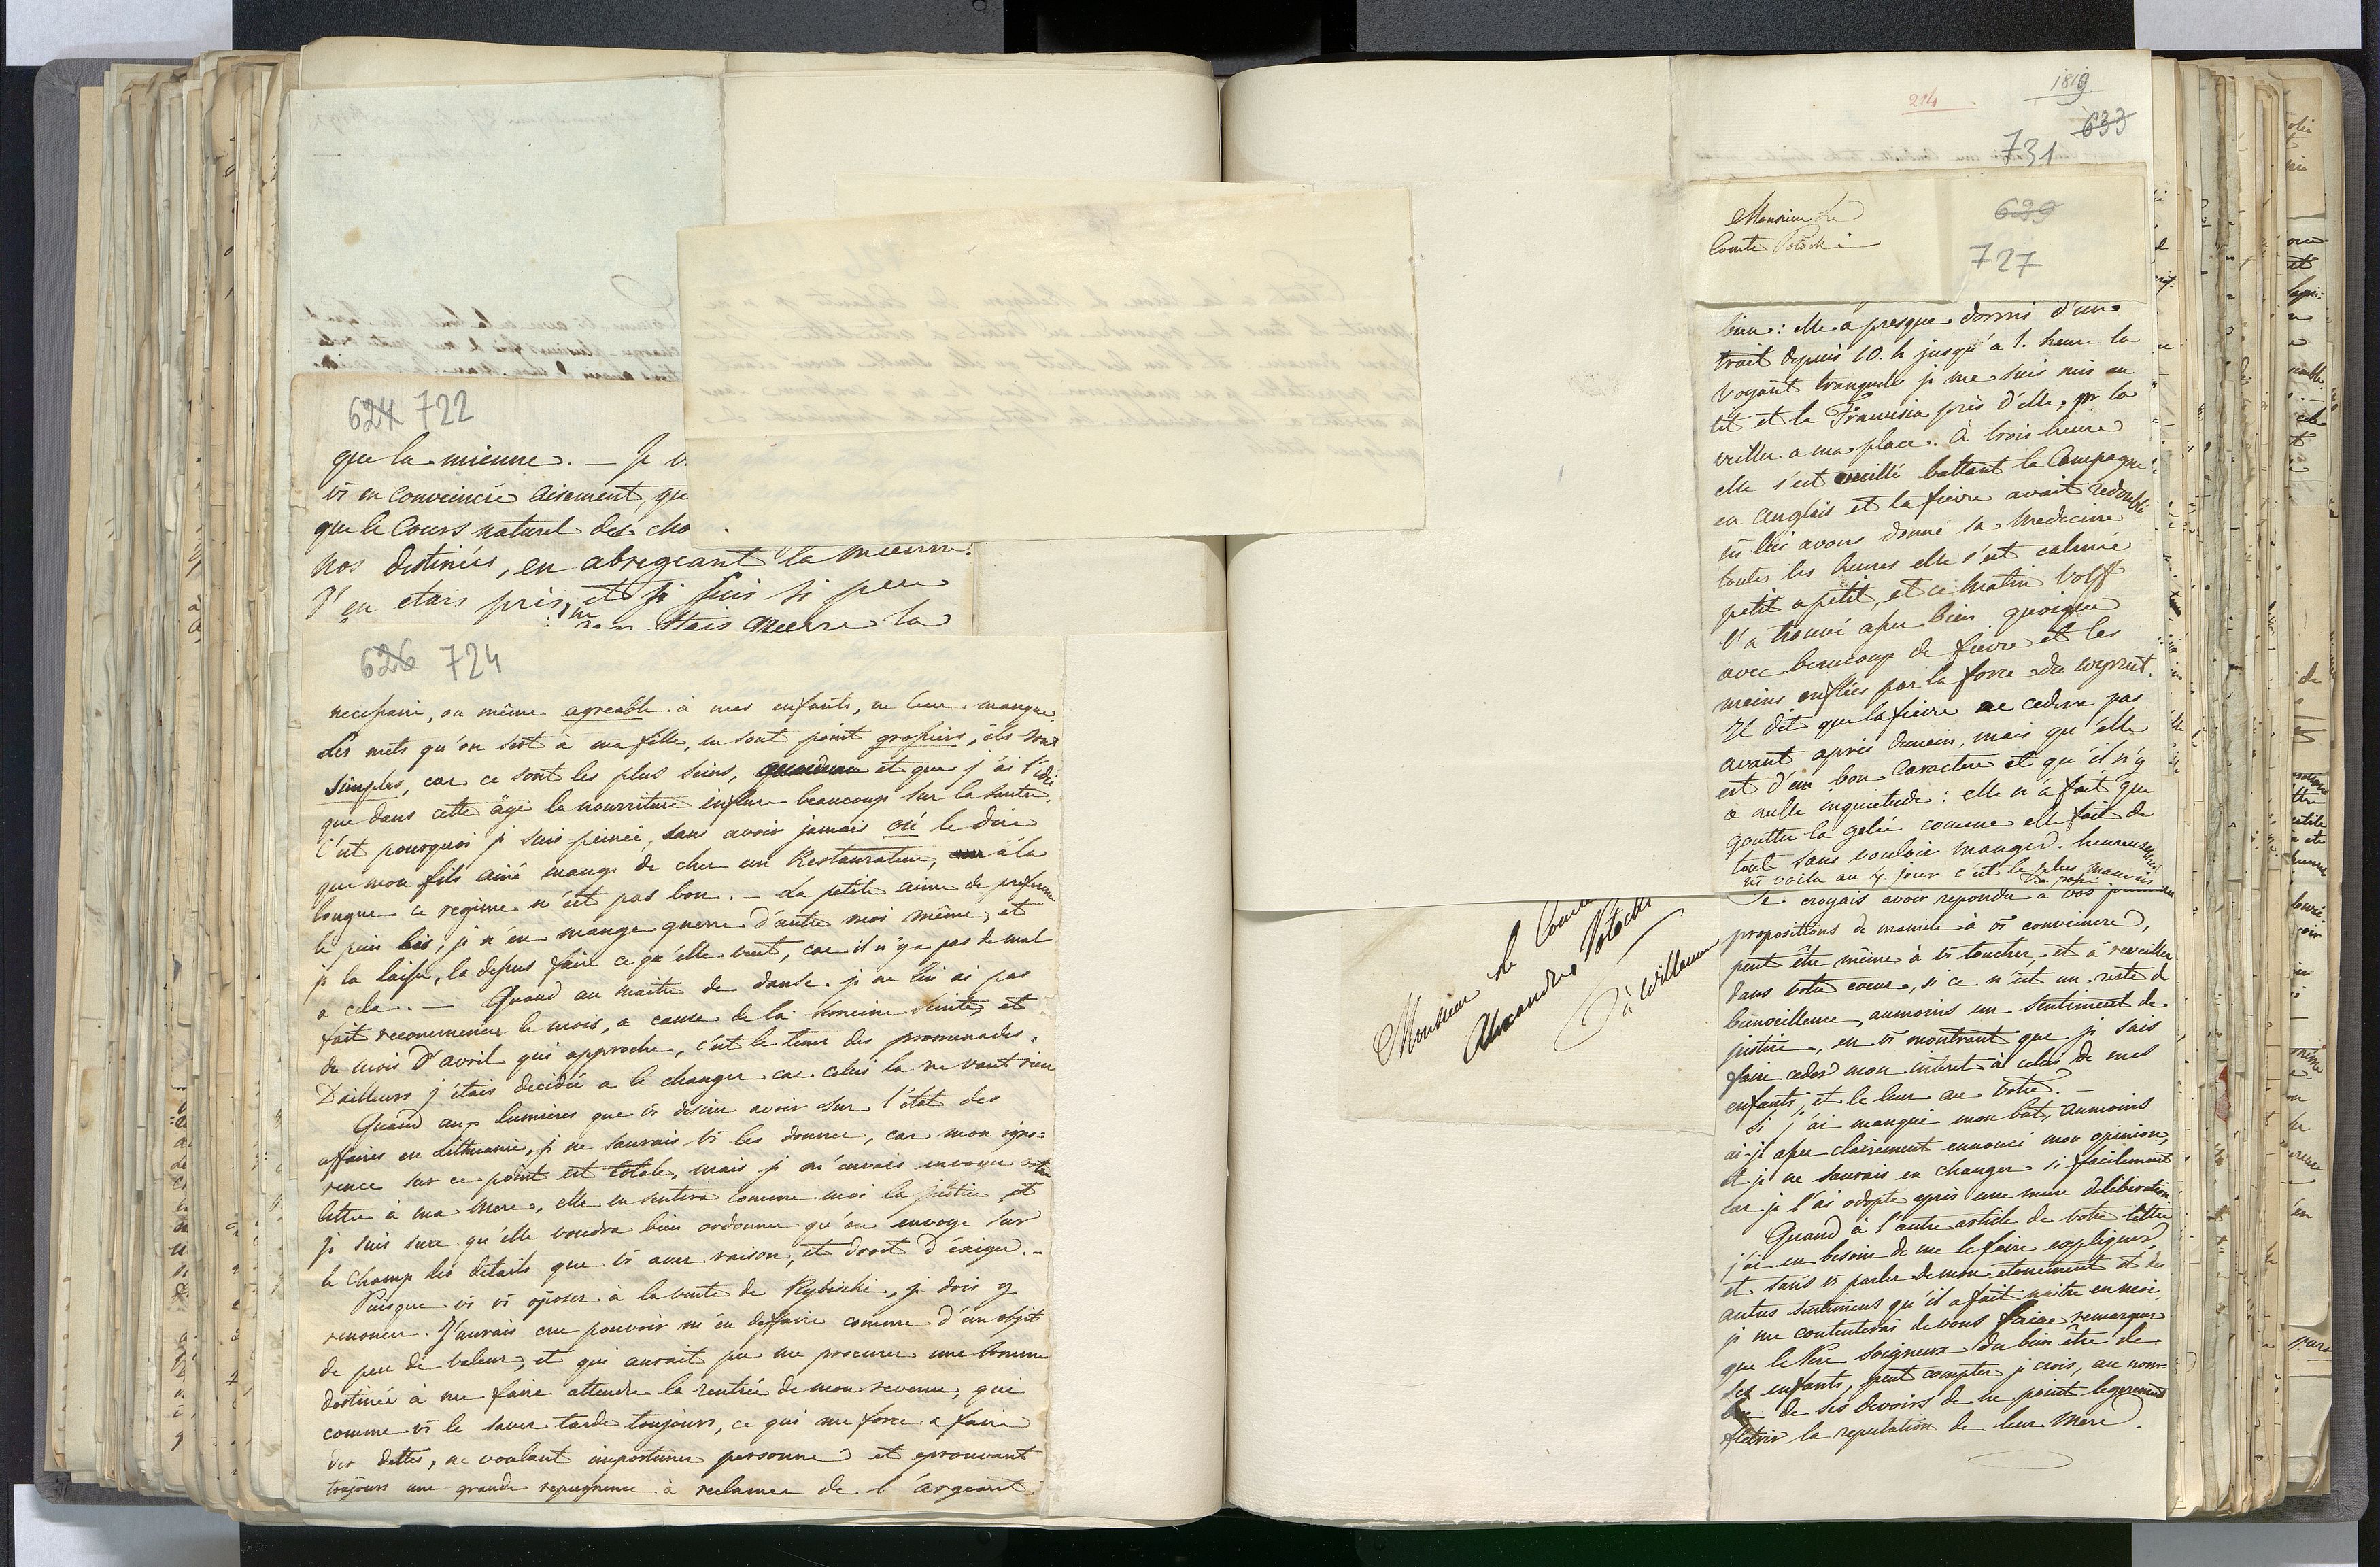 624 722
que la mienne. — Je v
vs en conveincre aisement, que
que le Cours naturel des cho
nos destinées, en abregeant la mienne.
J'en etais près, et je suis si peu
Mais qu
626 724
necessaire, ou même agreable à mes enfants, ne leur manque.
Les mets qu'on sert à ma fille, ne sont point grossiers, ils sont
simples, car ce sont les plus seins, et que j'ai l'idée
que dans cette âge la nourriture influe beaucoup sur la santée.
C'est pourquoi je suis peinée, sans avoir jamais osé le dire
que mon fils ainé mange de chez un Restaurateur, à la
longue ce regime n'est pas bon. — La petite aime de preference
le pain bis, je n'en mange guerre d'autre moi même, et
je la laisse, la dessus faire ce qu'elle veut, car il n'y a pas de mal
a cela. — Quand au maitre de danse je ne lui ai pas
fait recommencer le mois, a cause de la semeine seinte, et
du mois d'avril qui approche, c'est le tems des promenades.
D'ailleurs j'étais decidée a le changer car celui la ne vaut rien
Quand aux lumières que vs desirez avoir sur l'état des
affaires en Lithuanie, je ne saurais vs les donner, car mon igno:
rence sur ce point est totale, mais je m'envais envoyer votre
lettre à ma Mere, elle en sentira comme moi la justice et
je suis sure qu'elle voudra bien ordonner qu'on envoye sur
le champ les détails que vs avez raison, et droit d'éxiger. —
Puisque vs vs oposez à la vente de Rybiszki, je dois y
renoncer. J'aurais cru pouvoir m'en deffaire comme d'un objet
de peu de valeur, et qui aurait pu me procurer une somme
destinée à me faire attendre la rentrée de mon revenu, qui
comme vs le savez tarde toujours, ce qui me force a faire
des dettes, ne voulant importuner personne et eprouvant
toujours une grande repugnence à reclamer de l'argeant
1819
214
633
731
Monsieur Le
Comte Potocki
629
727
bien: elle a presque dormi d'un
trait depuis 10. h jusqu'a 1. heure la
voyant tranquille je me suis mis au
lit et la Franusia près d'elle, pr la
veiller a ma place. à trois heures
elle s'est eveillé battant la Campagne
en Anglais et la fievre avait redoublé
ns lui avons donné sa Medecine
toutes les heures elle s'est calmée
petit a petit, et ce matin Volff
l'a trouvé assez bien quoique
avec beaucoup de fievre et les
meins enflées par la force du
Il dit que la fievre ne cedera pas
avant après demain, mais qu'elle
est d'un bon Caractere et qu'il n'y
a nulle inquietude: elle n'a fait que
goutter la gelée comme elle fait de
tout sans vouloir manger. heureusement
ns voila au 7. jour c'est le plus mauvais
Monsieur le Comte
Alexandre Potocki
à Willanow
Je croyais avoir repondu a vos
propositions de maniere à vs conveincre,
peut être même à vs toucher, et à reveiller
dans votre coeur, si ce n'est un reste de
bienveillence, aumoins un sentiment de
justice, en vs montrant que je sais
faire ceder mon interet à celui de mes
enfants, et le leur au votre. —
Si j'ai manqué mon but, aumoins
ai-je assez clairement ennoncé mon opinion,
et je ne saurais en changer si facilement
car je l'ai adopté après une mure deliberation
Quand à l'autre article de votre lettre
j'ai eu besoin de me le faire expliquer
et sans vs parler de mon etonement et des
autres sentimens qu'il a fait naitre en moi,
je me contenterai de vous faire remarquer
que le Pere soigneux du bien être de
ses enfants, peut compter je crois, au nom:
bre de ses devoirs de ne point legerement
fletrir la reputation de leur Mere.